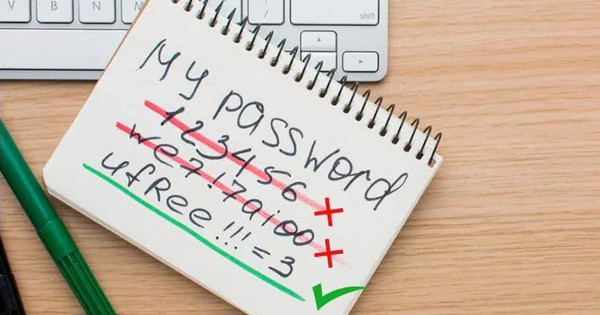 V B N M
shift
My password
123456
we7!7aioo
4fRee!!!=3